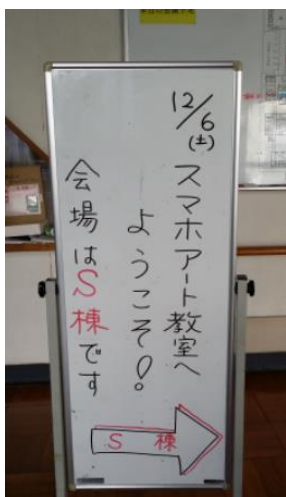 12/6
(土)
スマホアート教室へ
ようこそ!
会場はS棟です
S 棟